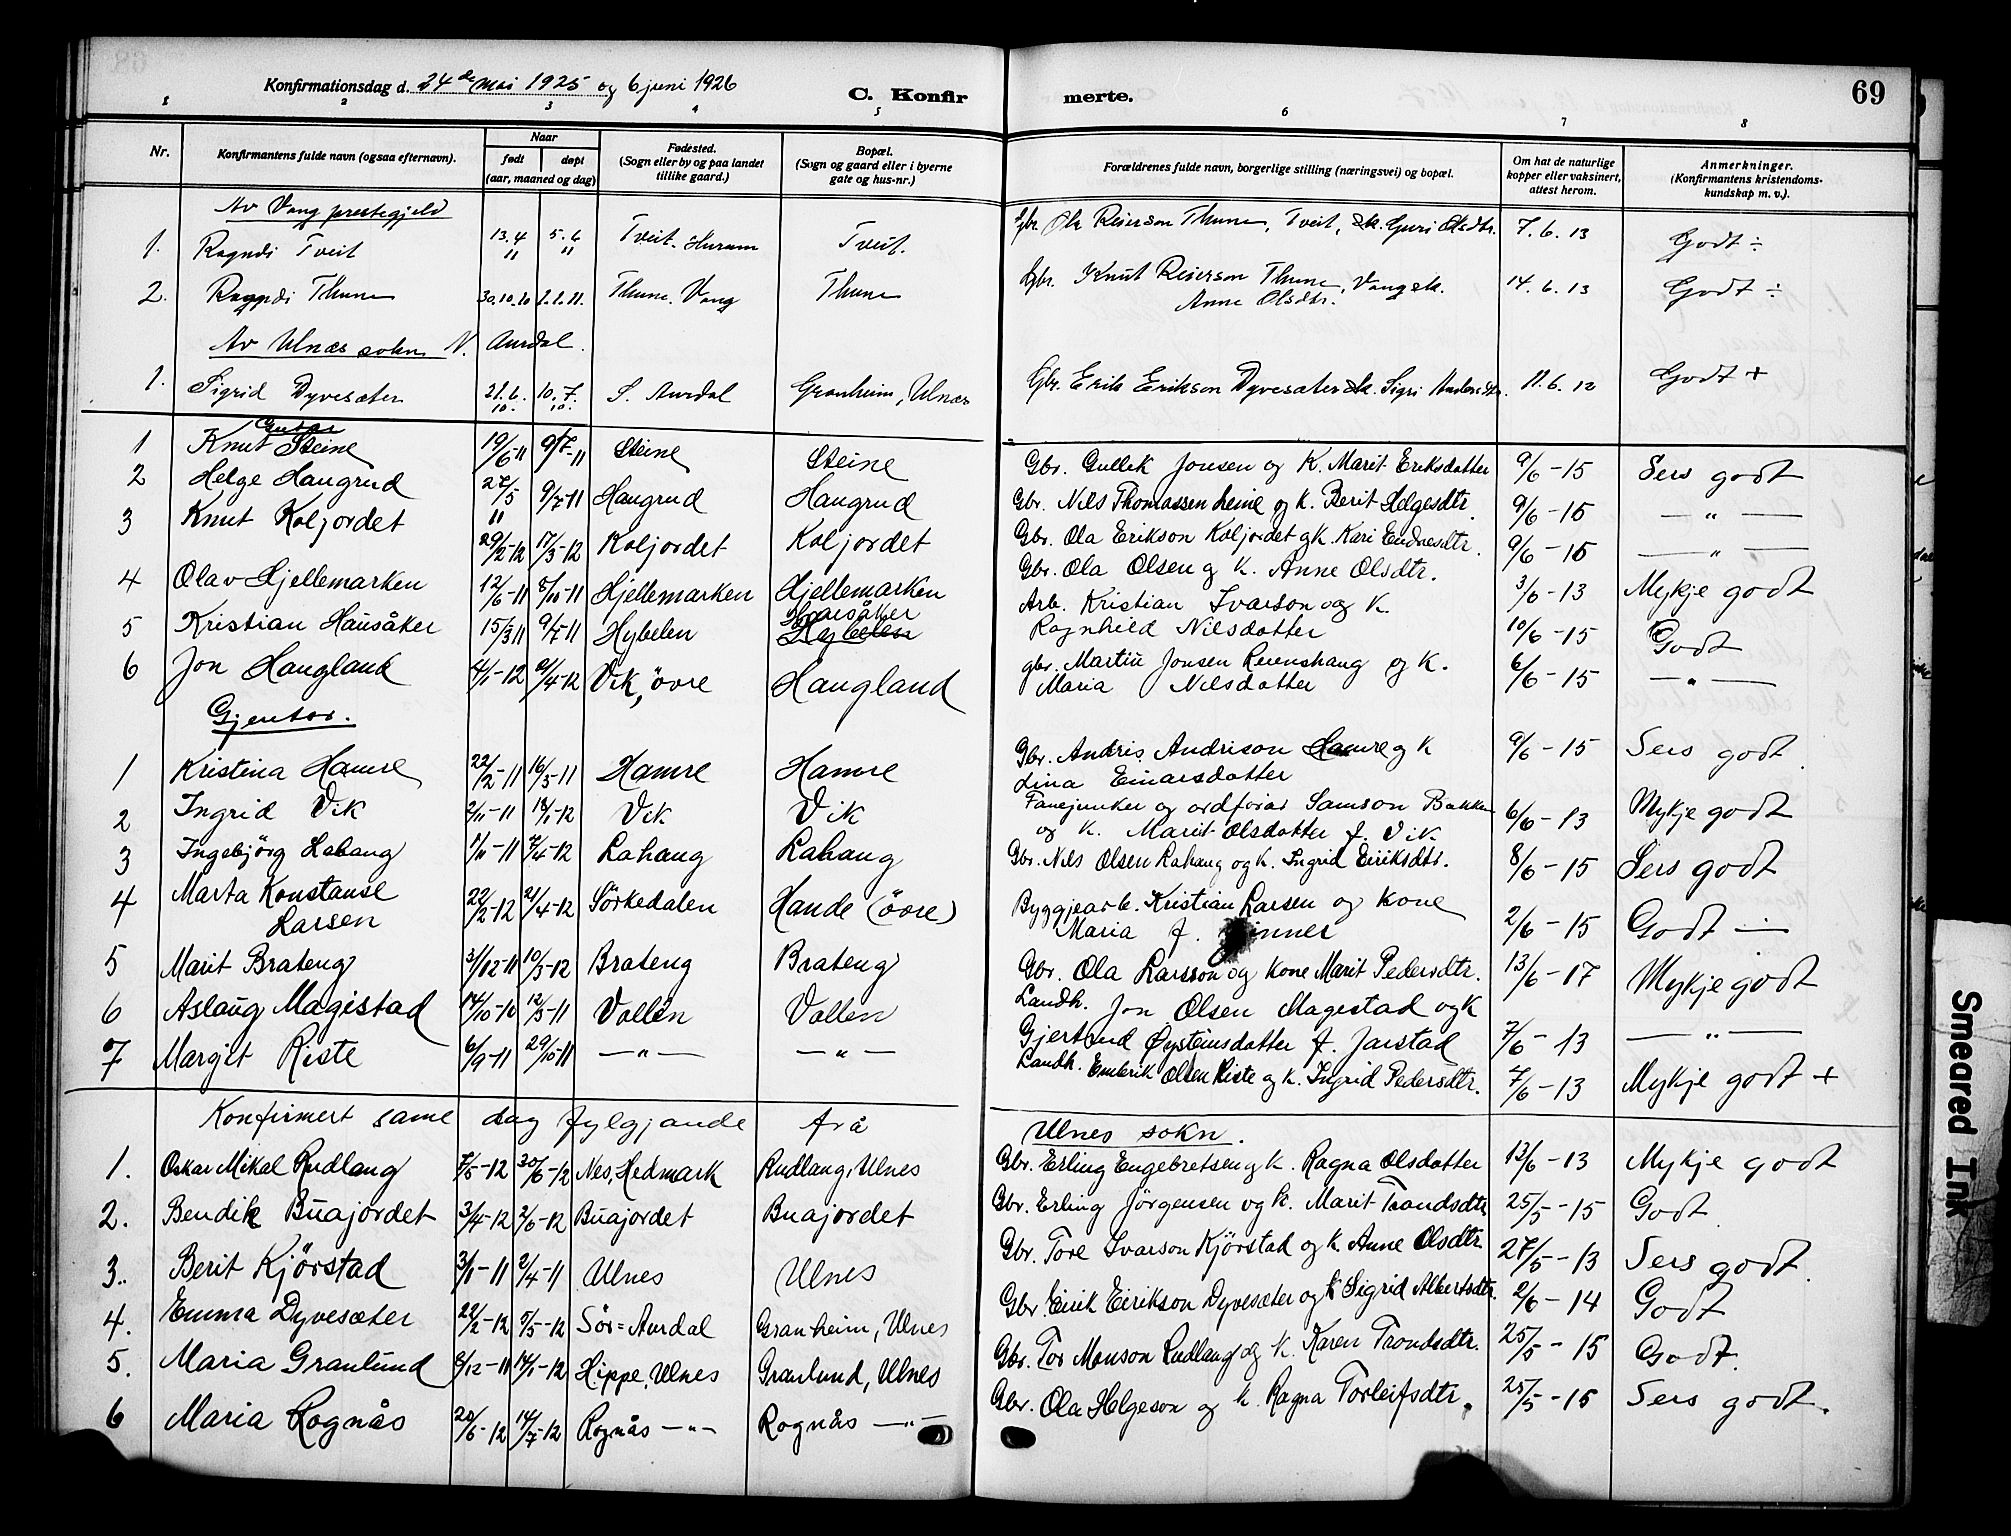 Konfirmationsdag d. 24 de mai 1925 og 6 juni 1926 C. Konfirmerte. 69
1 2 3 4 5 6 7 8
Nr. Konfirmantens fulde navn (ogsaa efternavn). Naar født døpt (aar, maaned og dag) Fødested. (Sogn eller by og paa landet tillike gaard.) Bopæl. (Sogn og gaard eller i byerne gate og hus-nr.) Forældrenes fulde navn, borgerlige stilling (næringsvei) og bopæl. Om hat de naturlige kopper eller vaksinert, attest herom. Anmerkninger. (Konfirmantens kristendomskundskap m. v.).
Av Vang prestegjeld
1. Ragndi Tveit 13.4 11 5.6 11 Tveit. Hurum Tveit. Gbr. Ola Reierson Thune, Tveit, k. Guri Olsdtr. 7.6.13 Godt ÷
2. Ragndi Thune 30.10.10 2.2.11. Thune. Vang Thune Gbr. Knut Reierson Thune, Vang k. Anne Olsdtr. 14.6.13 Godt ÷
Av Ulnæs sokn N. Aurdal.
1. Sigrid Dyvesæter 21.6.10. 10.7.10. S. Aurdal Granheim, Ulnæs Gbr. Erik Erikson Dyvesæter k. Sigri Andersdtr. 11.6.12 Godt +
Gutar
1 Knut Steine 19/6-11 9/7-11 Steine Steine Gbr. Gullik Jonsen og K. Marit Eriksdotter 9/6-15 Sers godt
2 Helge Haugrud 27/5 11 9/7-11 Haugrud Haugrud Gbr. Nils Thomassen Leine og k. Berit Helgesdtr. 9/6-15 — " —
3 Knut Koljordet 29/2-12 17/3-12 Koljordet Koljordet Gbr. Ola Erikson Koljordet og k. Kari Endresdtr. 9/6-15 — " —
4 Olav Hjellemarken 12/6-11 8/10-11 Hjellemarken Hjellemarken Gbr. Ola Olsen og k. Anne Olsdtr. 3/6-13 Mykje godt
5 Kristian Hausåker 15/3 11 9/7-11 Hybelen Hausåker Hybelen Arb. Kristian Ivarson og k. Ragnhild Nilsdotter 10/6-15 Godt
6 Jon Haugland 4/1-12 9/4-12 Vik, övre Haugland gbr. Martin Jonsen Reienshaug og k. Maria Nilsdotter 6/6-15 — " —
Gjentor.
1 Kristina Hamre 22/2-11 16/3-11 Hamre Hamre Gbr. Andris Andrison Hamre og k Lina Einarsdotter 9/6-15 Sers godt
2 Ingrid Vik 2/11-11 18/1-12 Vik Vik Fanejunker og ordförar Samson Bakken og k. Marit Olsdotter f. Vik. 6/6-13 Mykje godt
3 Ingebjörg Lahaug 1/11-11 7/4-12 Lahaug Lahaug Gbr. Nils Olsen Lahaug og k. Ingrid Eiriksdtr. 8/6-15 Sers godt
4 Marta Konstanse Larsen 22/2-12 21/4-12 Sörkedalen Hande (övre) Byggjearb. Kristian Larsen og kone Maria f. inner 2/6-15 Godt —
5 Marit Brateng 31/12-11 10/3-12 Brateng Brateng Gbr. Ola Larsson og kone Marit Pedersdtr. 13/6-17 Mykje godt
6 Aslaug Magistad 14/10-10 12/3-11 Vollen Vollen Landh. Jon Olsen Magestad og k Gjertrud Øysteinsdotter f. Jarstad 7/6-13 — " —
7 Margit Riste 6/9-11 29/10-11 — " — — " — Landh. Embrik Olsen Riste og k. Ingrid Pedersdtr. 7/6-13 Mykje godt +
Konfirmert same dag fylgjande frå Ulnes sokn.
1. Oskar Mikal Rudlang 7/5-12 30/6-12 Nes, Hedmark Rudlang, Ulnes Gbr. Erling Engebretsen og k. Ragna Olsdotter 13/6-13 Mykje godt
2. Bendik Buajordet 3/4-12 2/6-12 Buajordet Buajordet Gbr. Erling Jörgensen og k. Marit Trondsdtr 25/5-15 Godt
3. Berit Kjörstad 3/1-11 2/4-11 Ulnes Ulnes Gbr. Tore Ivarson Kjörstad og k. Anne Olsdtr. 27/5-13 Sers godt.
4. Emma Dyvesæter 22/2-12 5/5-12 Sör=Aurdal Granheim, Ulnes Gbr. Eirik Eirikson Dyvesæter og k Sigrid Albertsdtr. 2/6-14 Godt
5. Maria Granlund 8/12-11 14/1-12 Hippe, Ulnes Granlund, Ulnes Gbr. Tor Monson Rudlang og k. Karen Trondsdtr. 25/5-15 Godt.
6 Maria Rognås 20/6-12 14/7-12 Rognås — " — Rognås — " — Gbr. Ola Helgeson og k. Ragna Torleifsdtr. 25/5-15 Sers godt.
Smeared Ink